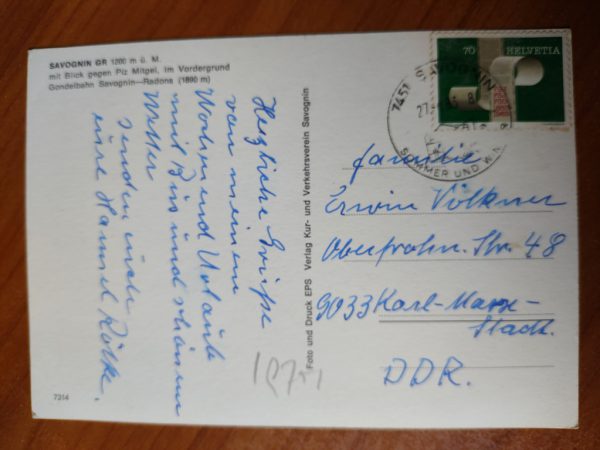 SAVOGNIN GR 1200 m ü. M.
mit Blick gegen Piz Mitgel, im Vordergrund
Gondelbahn Savognin—Radons (1890 m)
Herzliche Grüße
von meinem
Wochenend Urlaub
mit und schönem
Wetter
senden euch
eure Hansel
7314
Foto und Druck EPS Verlag Kur- und Verkehrsverein Savognin
70 HELVETIA
7451 SAVOGNIN
SOMMER UND
Familie
Erwin Völkner
Oberfrohn. Str. 48
9033 Karl-Marx-
Stadt.
DDR.